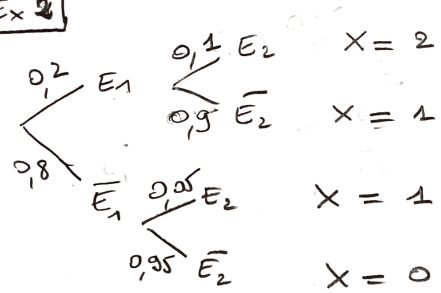 Ex 2
0,1 E₂ X = 2
0,2 E₁
0,9 E̅₂ X = 1
0,8 E̅₁ 0,05 E₂ X = 1
0,95 E̅₂ X = 0